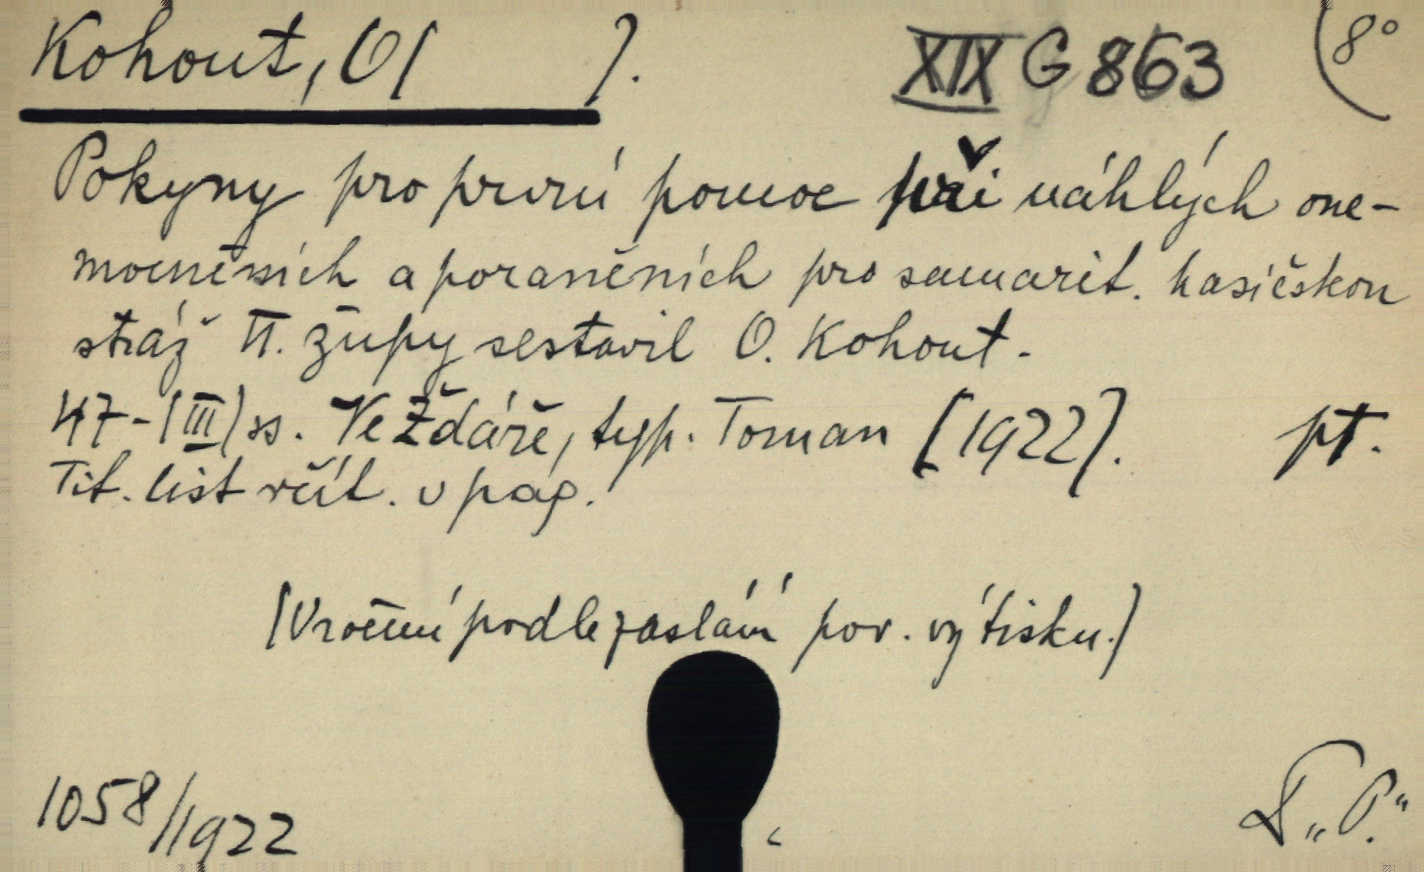 Kohout, O( ). XIX G 863 (8°
Pokyny pro první pomoc při náhlých one-
mocněních a poraněních pro samarit. hasičskou
stráž II. župy sestavil O. Kohout.
47-(III) ss. Ve Ždáře, typ. Toman [1922]. pt.
Tit. list včít. v pag.
(Vročení podle zaslání pov. výtisku.)
1058/1922 "P."